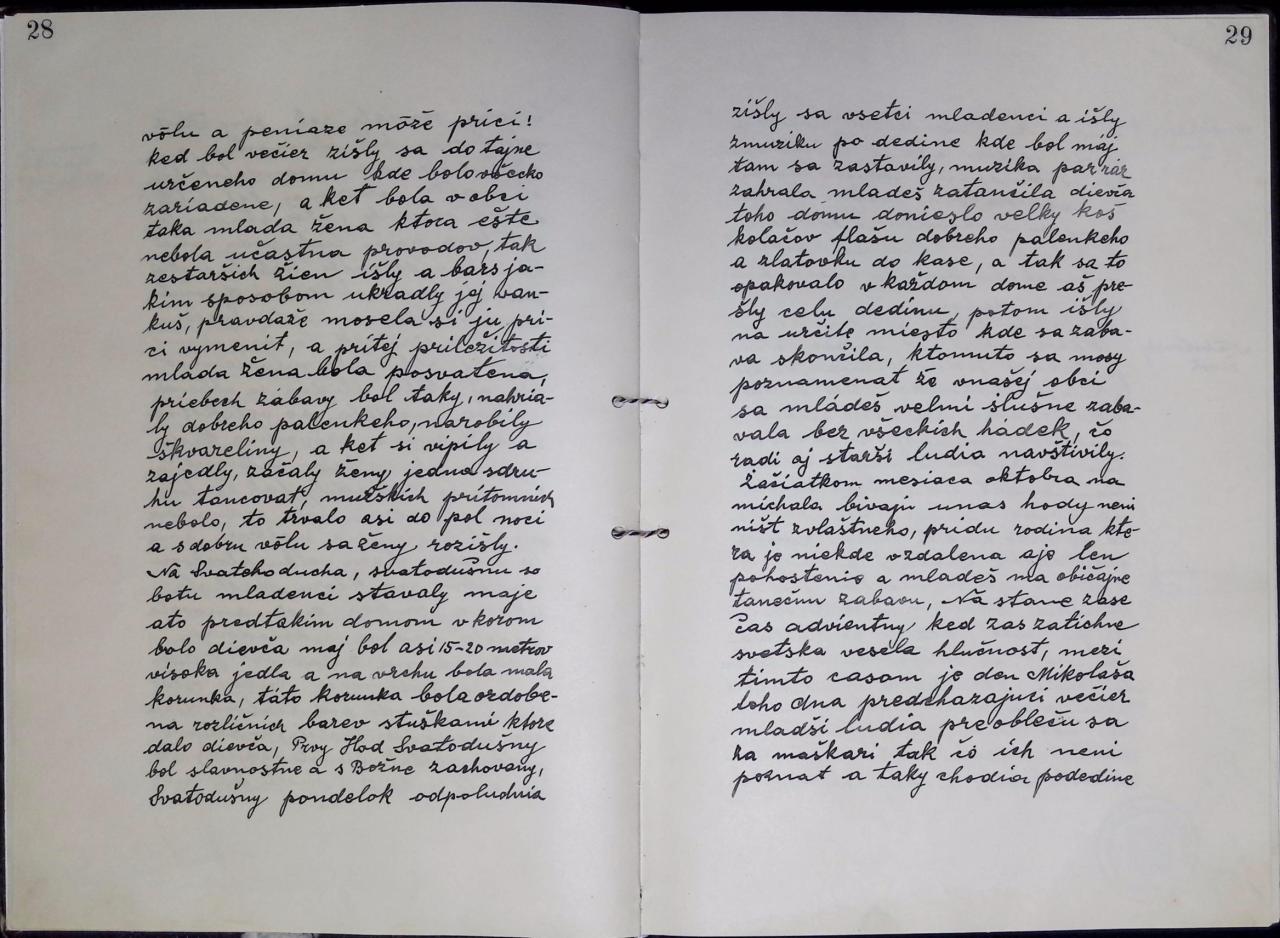 28
vôlu a peniaze môže prici!
ked bol večier zišly sa do tajne
určeneho domu kde bolo všecko
zariadene, a ket bola v obci
taka mlada žena ktora ešte
nebola učastna provodov, tak
zestaršich žien išly a bars ja-
kim sposobom ukradly jej wan-
kuš, pravdaže mosela si ju pri-
ci vymenit, a pritej priležitosti
mlada žena bola posvatena,
priebech zábavy bol taky, nahria-
ly dobreho palenkeho, narobily
škvareliny, a ket si vipily a
zajedly, začaly ženy jedna sdru-
hu tancovat, mužskich pritomnich
nebolo, to trvalo asi do pol noci
a sdobru vôlu sa ženy rozišly.
Na Svateho ducha, svatodušnu so
botu mladenci stavaly maje
ato predtakim domom v korom
bolo dievča maj bol asi 15-20 metrov
visoka jedla a na vrchu bola mala
korunka, táto korunka bola ozdobe-
na rozličnich barev stuškami ktore
dalo dievča, Prvy Hod Svatodušny
bol slavnostne a s Božne zachovany,
Svatodušny pondelok odpoludnia
29
zišly sa vsetci mladenci a išly
zmuziku po dedine kde bol máj
tam sa zastavily, muzika par ráz
zahrala mladeš zatančila dievča
toho domu donieslo velky koš
kolačov flašu dobreho palenkeho
a zlatovku do kase, a tak sa to
opakovalo v každom dome aš pre-
šly celu dedinu, potom išly
na určite miesto kde sa zaba-
va skončila, ktomuto sa mosy
poznamenat že vnašej obci
sa mládeš velmi slušne zaba-
vala bez všeckich hádek, čo
radi aj starši ludia navštivily.
Začiatkom mesiaca oktobra na
michala bivaju unas hody neni
ništ zvlaštneho, pridu rodina kto-
ra je niekde vzdalena aje len
pohostenie a mladeš ma običajne
tanečnu zabavu, Na stane zase
čas advientny ked zas zatichne
svetska vesela hlučnost, mezi
timto časom je den Mikolaša
toho dna predchazajuci večier
mladši ludia preobleču sa
za maškari tak čo ich neni
poznat a taky chodia podedine